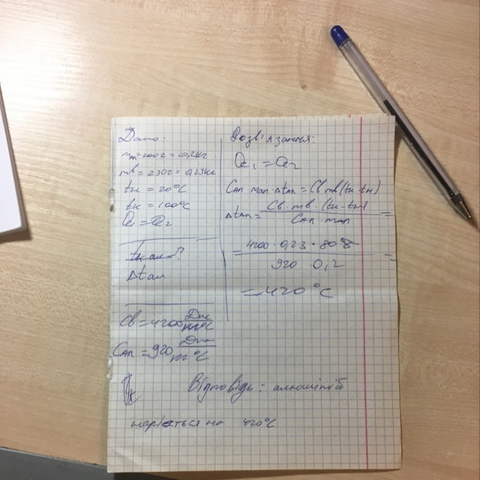 Дано:
mв = 230г = 0,23кг
tн = 20°C
tк = 100°C
Q₁ = Q₂
Δtал
Cв = 4200 Дж/кг°C
Cал = 920 Дж/кг°C
Розв'язання:
Q₁ = Q₂
Cал mал Δtал = Cв mв (tк - tн)
Δtал = Cв · mв · (tк - tн) / Cал · mал =
4200 · 0,23 · 80 / 920 · 0,2 =
= 420 °C
Відповідь: алюміній
нагріється на 420°C